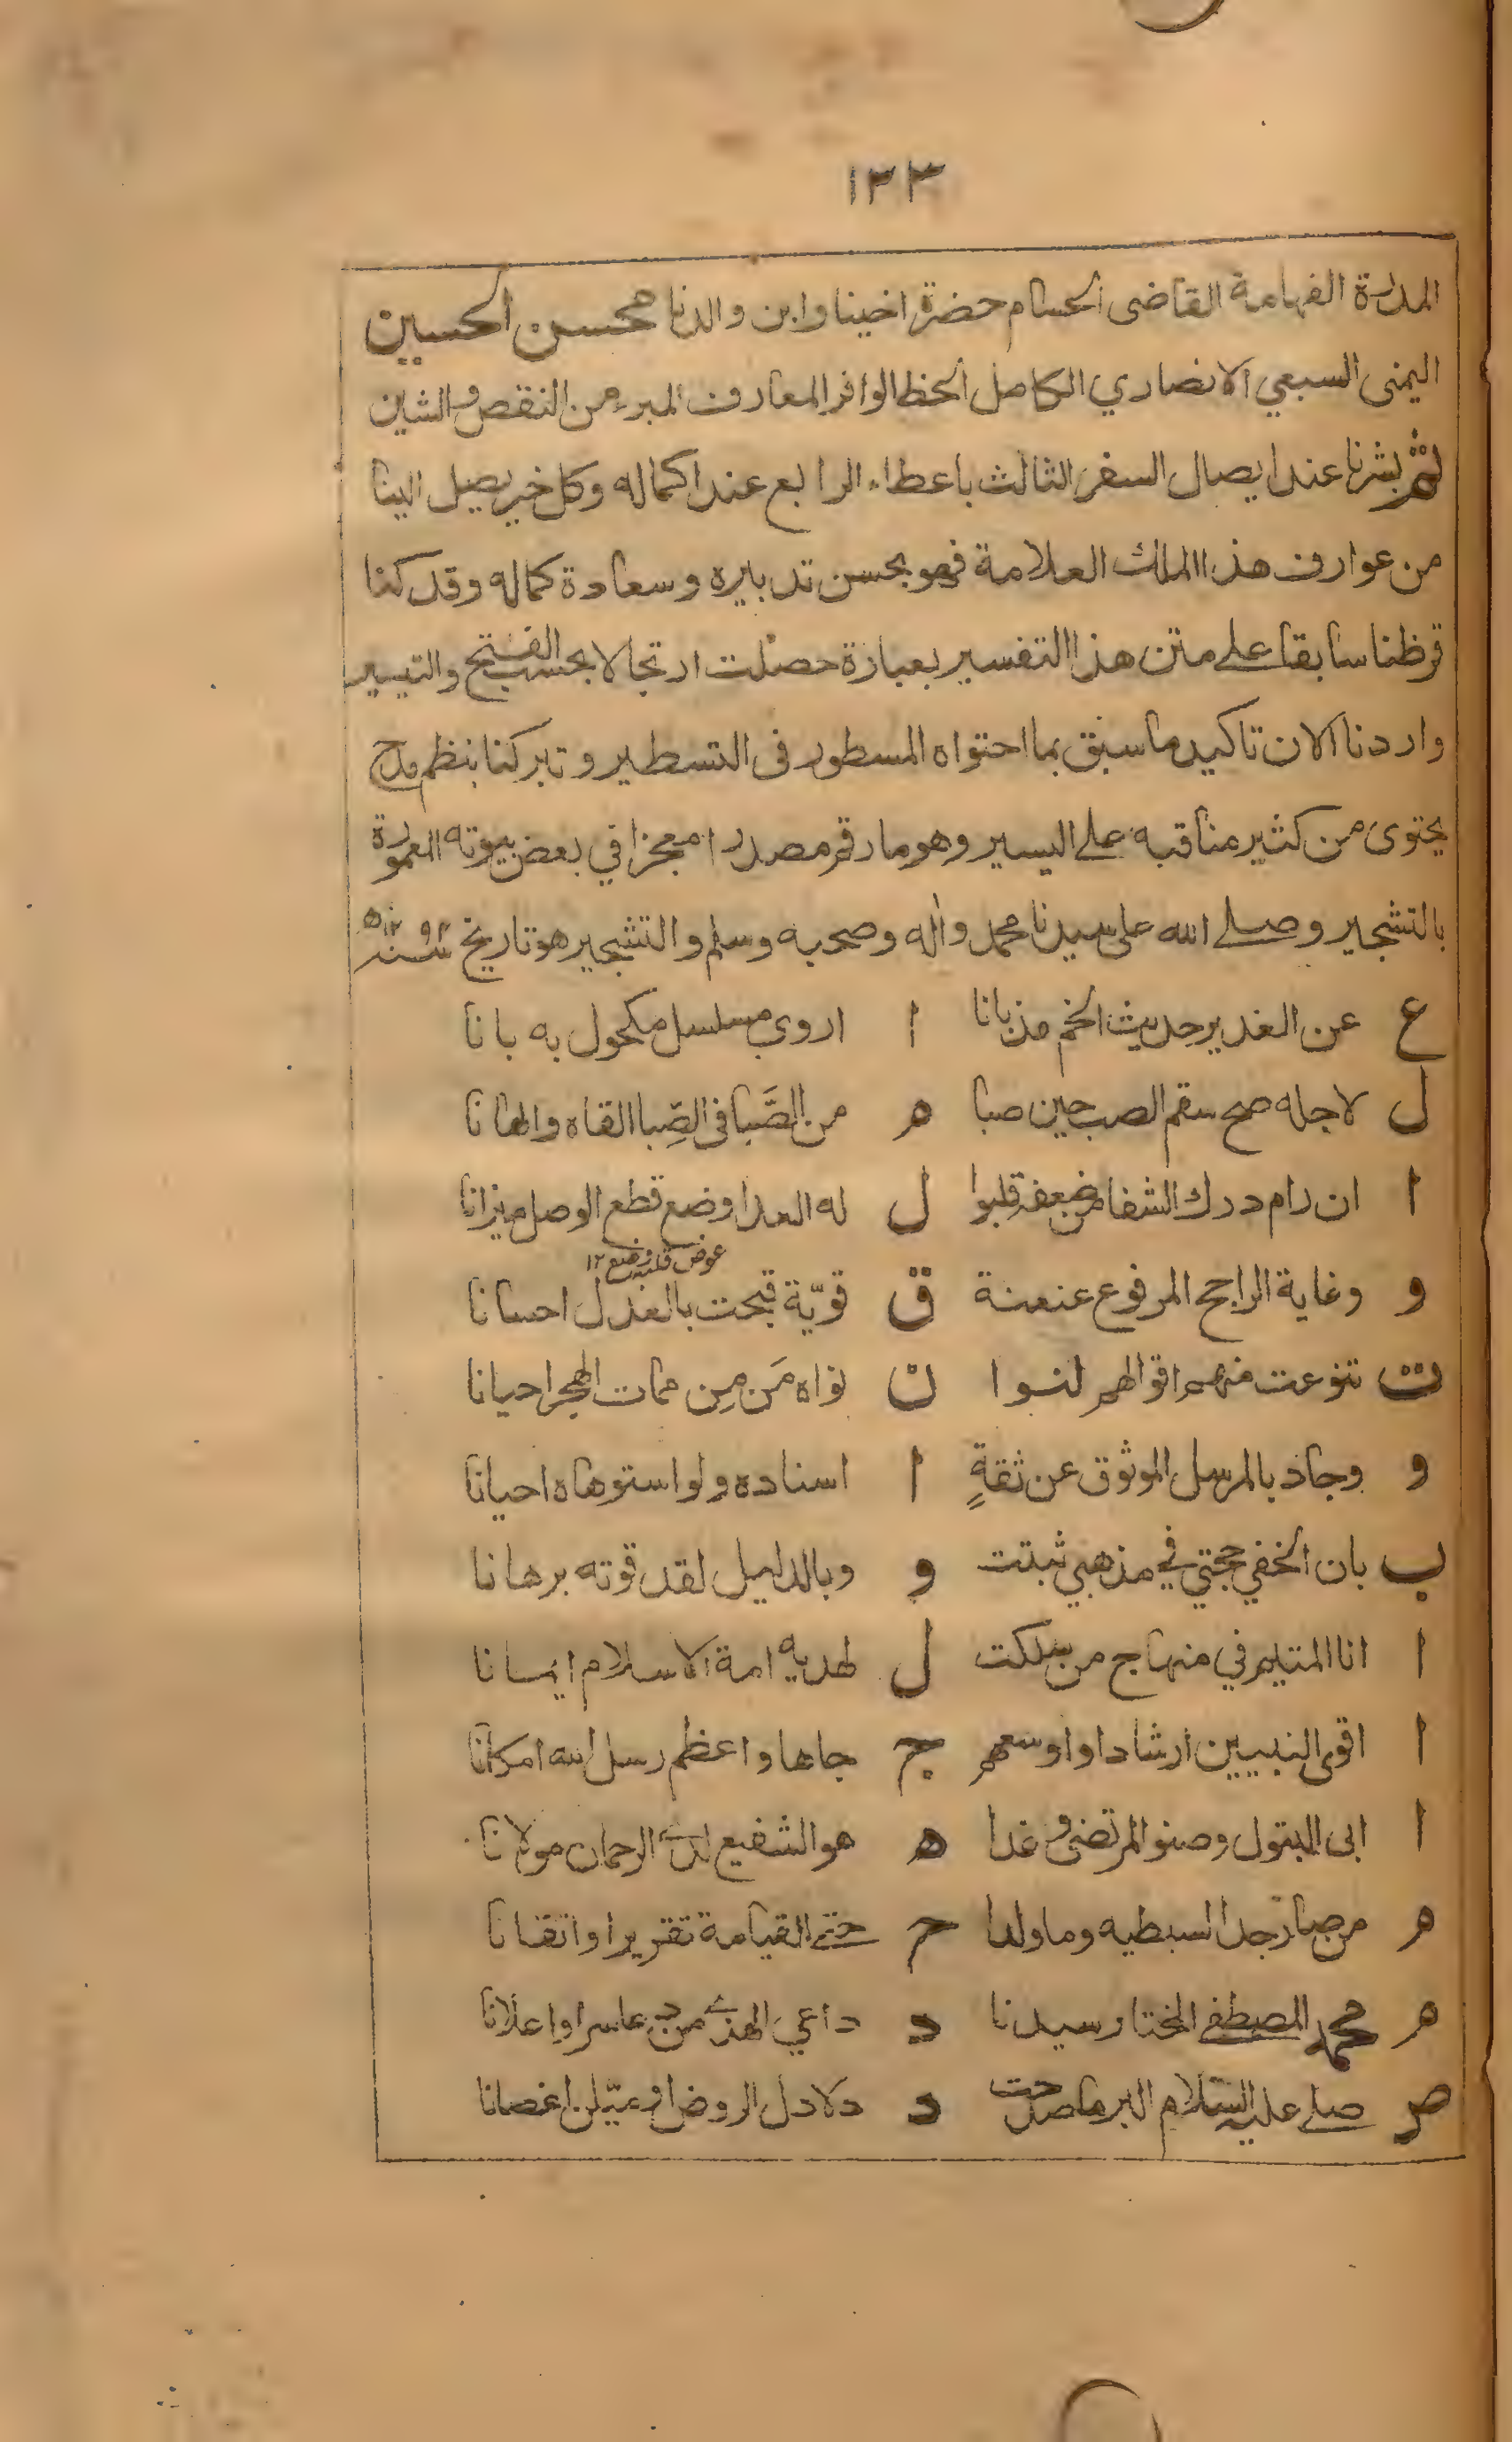 ١٣٣
المدرة الفهامة القاضى الحسام حضرة اخينا وابن والدنا محسن الحسين
اليمنى السبعي الانصاري الكامل الحظ الوافر المعارف المبرء من النقص والشين
ثم بشرنا عند ايصال السفر الثالث باعطاء الرابع عند اكماله وكل خير يصل الينا
من عوارف هذا الملك العلامة فهو بحسن تدبيره وسعادة كماله وقد كنا
قرظنا سابقا على متن هذا التفسير بعبارة حصلت ارتجالا بحسب الفتح والتيسير
واردنا الان تاكيد ما سبق بما احتواه المسطور فى التسطير وتبركنا بنظم مدح
يحتوى من كثير مناقبه على اليسير وهو ما رقم مصدرا معجزا في بعض بيوته المعمورة
بالتشجير وصلے الله على سيدنا محمد واله وصحبه وسلم والتشجير هو تاريخ سنة
ع عن الغدير حديث الخم مذ بانا ا اروى مسلسل مكحول به بانا
ل لاجله صح سقم الصب حين صبا ه من الصَّبا فى الصِّبا القاه والهانا
ا ان رام درك الشفا من ضعفه قلبوا ل له العدا وضع قطع الوصل ميزانا
عوض قلبه وضع ١٢
و وغاية الراجح المرفوع عنعنة ق قويّة قبحت بالعذل احسانا
ت تنوعت منهم اقوالهم لنوا ن نواه مَن مِن ممات الهجر احيانا
و وجاد بالمرسل الموثوق عن ثقةٍ ا اسناده ولو استوهاه احيانا
ب بان الخفي حجتي في مذهبي ثبتت و وبالدليل لقد قوته برهانا
ا انا المتيم في منهاج من سلكت ل لهديه امة الاسلام ايمانا
ا اقوى النبيين ارشادا واوسعهم ج جاها واعظم رسل الله امكانا
ا ابى البتول وصنو المرتضى وغدا ه هو الشفيع لدے الرحمان مولانا
ه من صار جدا لسبطيه وما ولدا ح حتے القيامة تقريرا واتقانا
ه محمد المصطفے المختار سيدنا د داعي الهدے من دعا سرا واعلانا
ص صلے عليه السلام البر ما صدحت د دلادل الروض او ميّلن اغصانا